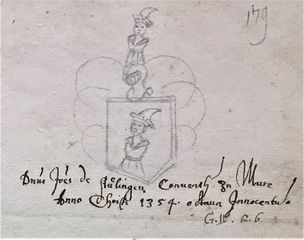 179
Dnus Joes de Rülingen Conventh Zu Mure
Anno Christi 1354 octava Innocentu
G. W. E. 6